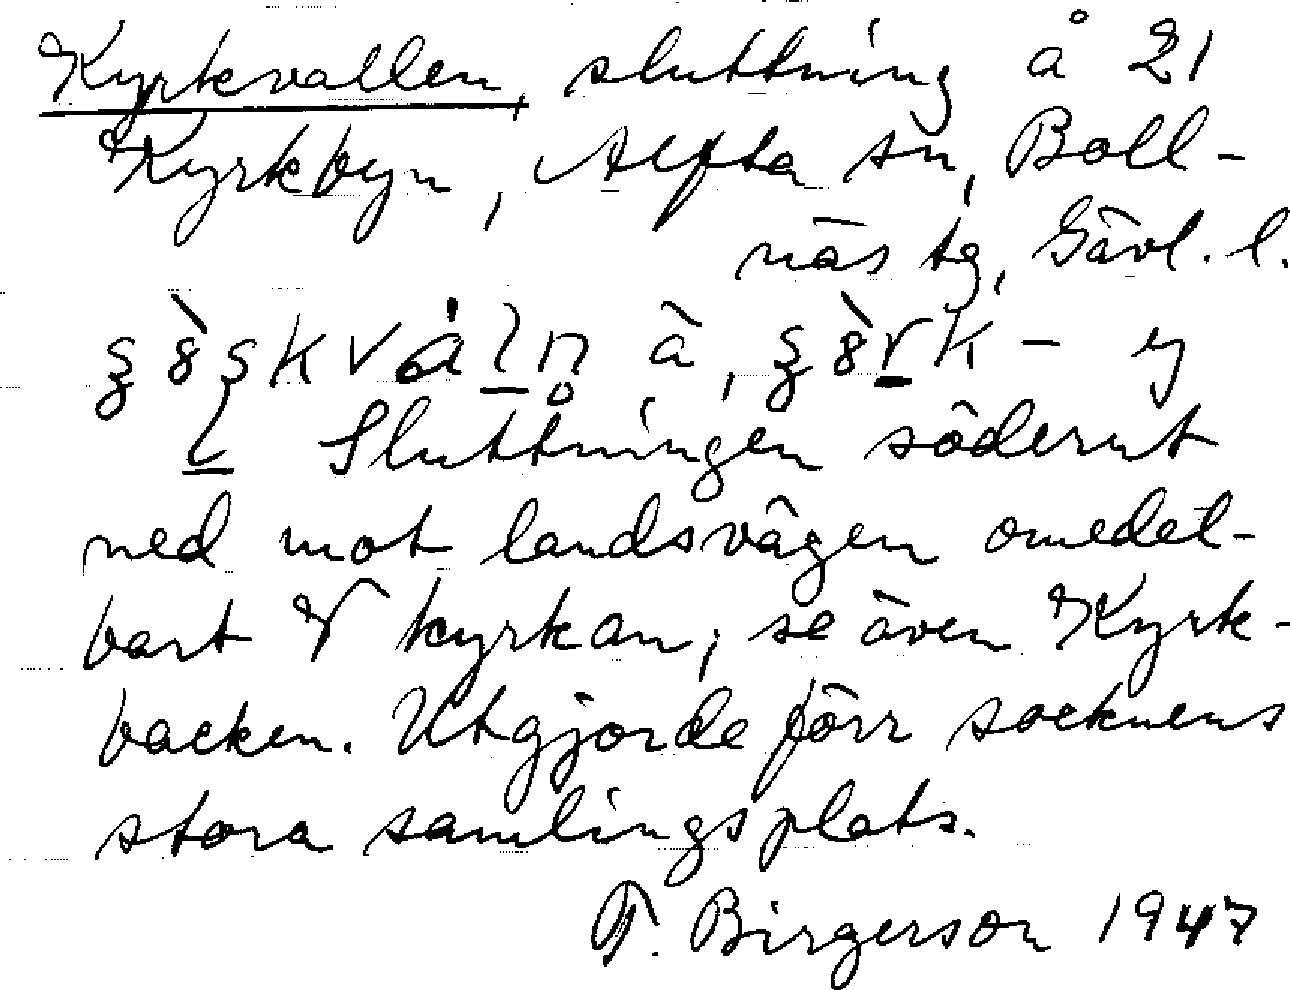 Kyrkvallen, sluttning å 21
Kyrkbyn, Alfta sn, Boll-
näs tg, Gävl. l.
Sluttningen söderut
ned mot landsvägen omedel-
bart V kyrkan; se även Kyrk-
backen. Utgjorde förr socknens
stora samlingsplats.
T. Birgerson 1947